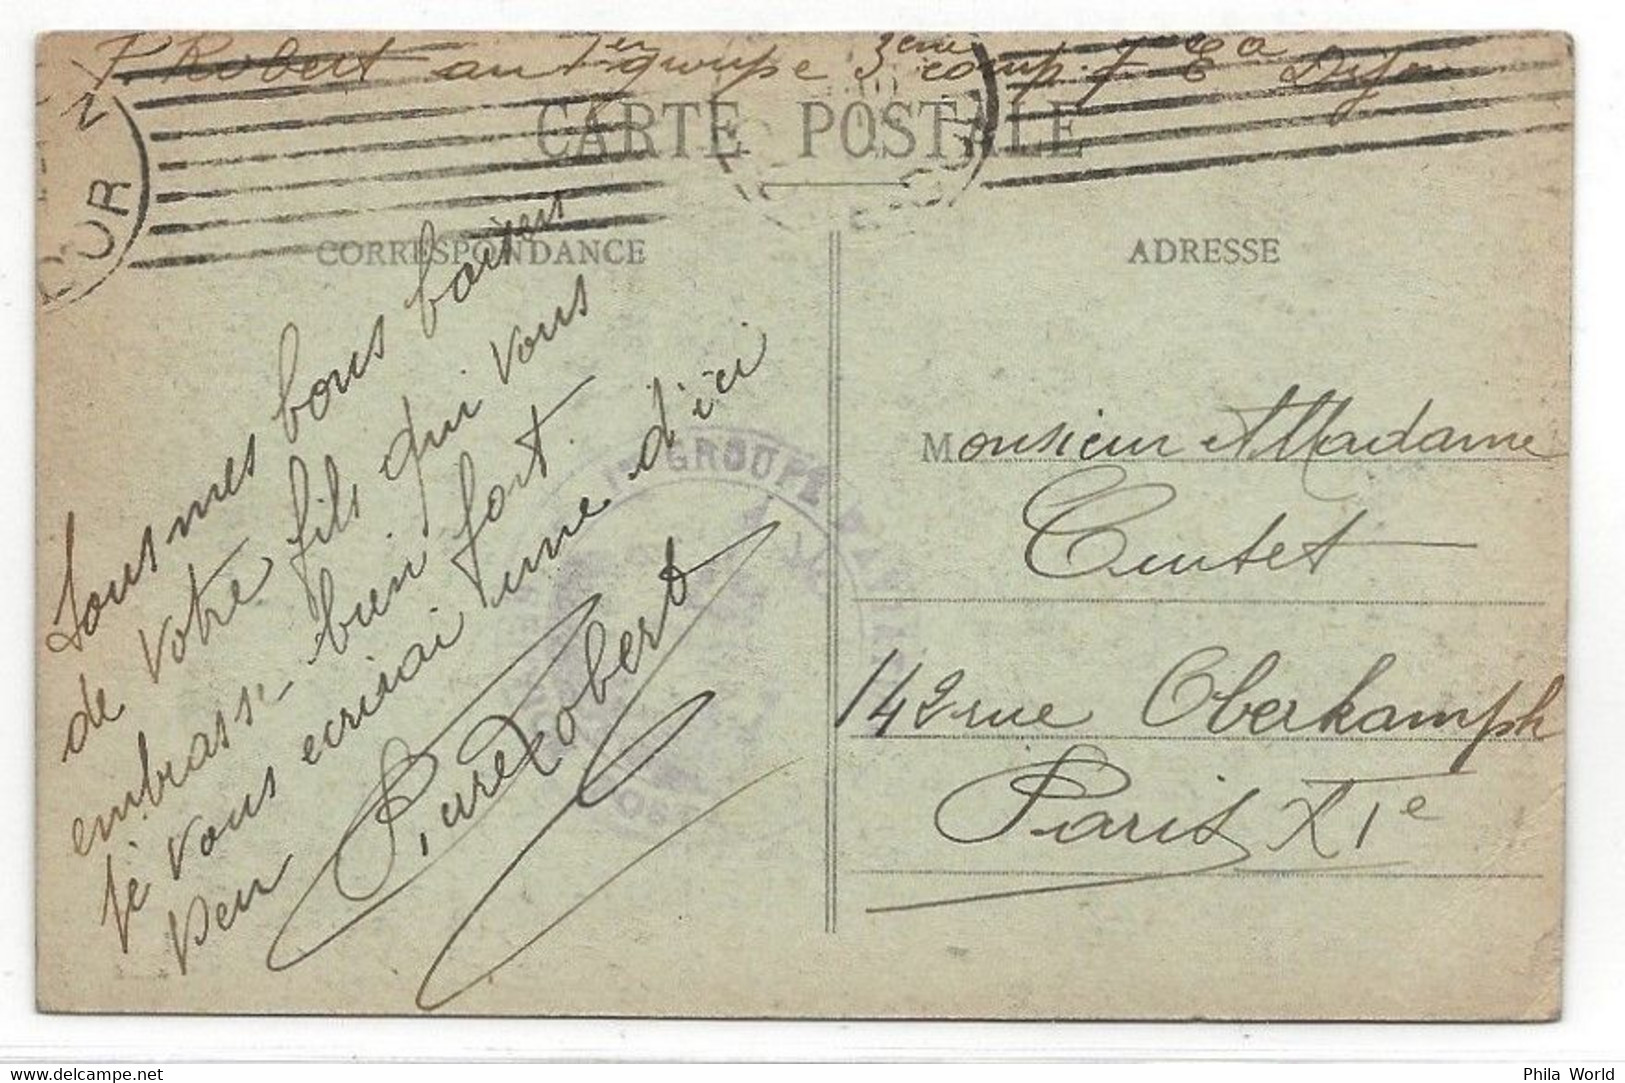 Robert au 1er groupe 3eme comp. 7 Ea Dijon
CARTE POSTALE
CORRESPONDANCE
ADRESSE
D'OR
Tous mes bons baisers
de votre fils qui vous
embrass- bien fort.
je vous écrirai une d'ici
peu
Robert
1er GROUPE
Monsieur et Madame
Cuntet
142 rue Oberkamph
Paris XIe
Phila World